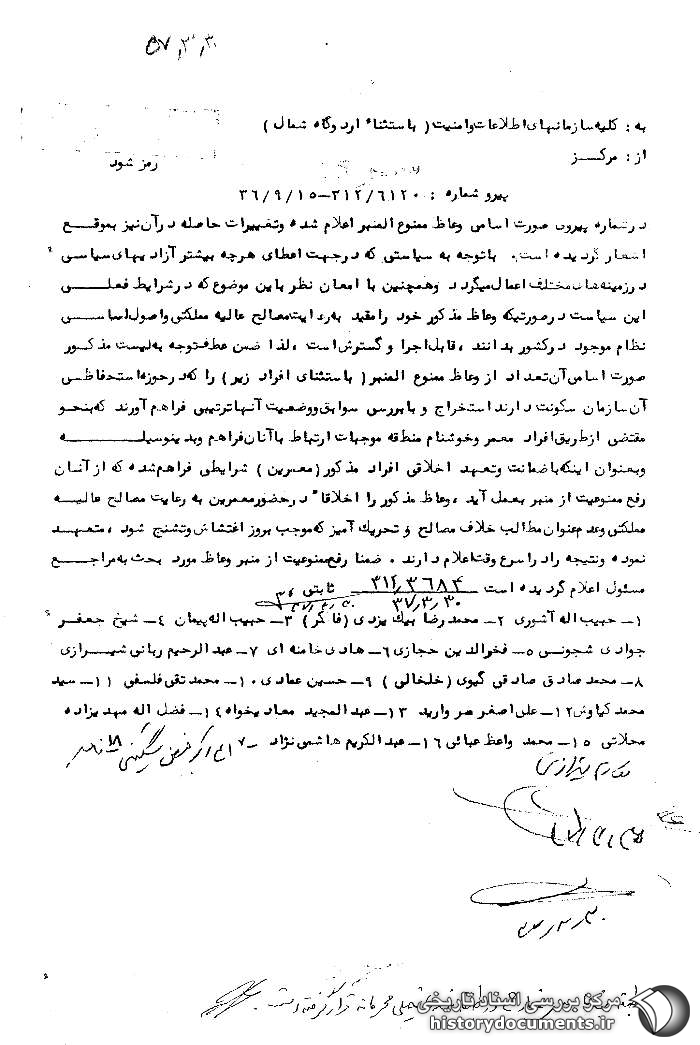 به : کلیه سازمانهای اطلاعات و امنیت ( باستثناء اردوگاه شمال )
از : مرکز
رمز شود
پیرو شماره : ۳۱۲/۶۱۲۰-۳۶/۹/۱۵
در شماره پیروی صورت اسامی وعاظ ممنوع المنبر اعلام شده و تغییرات حاصله در آن نیز بموقع
اشعار گردیده است . باتوجه به سیاستی که درجهت اعطای هرچه بیشتر آزادیهای سیاسی
در زمینه های مختلف اعمال میگردد وهمچنین با امعان نظر باین موضوع که در شرایط فعلی
این سیاست در صورتیکه وعاظ مذکور خود را مقید به رعایت مصالح عالیه مملکتی و اصول اساسی
نظام موجود در کشور بدانند ، قابل اجرا و گسترش است ، لذا ضمن عطف توجه به لیست مذکور
صورت اسامی آن تعداد از وعاظ ممنوع المنبر ( باستثنای افراد زیر ) را که در حوزه استحفاظی
آن سازمان سکونت دارند استخراج و با بررسی سوابق و وضعیت آنها ترتیبی فراهم آورند که بنحو
مقتضی از طریق افراد معمر وخوشنام منطقه موجبات ارتباط با آنان فراهم وبدینوسیله
وبعنوان اینکه با ضمانت وتعهد اخلاقی افراد مذکور (معمرین ) شرایطی فراهم شده که از آنان
رفع ممنوعیت از منبر بعمل آید ، وعاظ مذکور را اخلاقا" در حضور معمرین به رعایت مصالح عالیه
مملکتی وعدم عنوان مطالب خلاف مصالح و تحریک آمیز که موجب بروز اغتشاش و تشنج شود ، متعهد
نموده ونتیجه را در اسرع وقت اعلام دارند . ضمنا رفع ممنوعیت از منبر وعاظ مورد بحث به مراجع
مسئول اعلام گردیده است ثابتی
۳۱۲/۳۶۸۴
۳۷/۳/۳۰
۱- حبیب اله آشوری ۲- محمد رضا بیک یزدی (فاکر ) ۳- حبیب اله پیمان ۴- شیخ جعفر
جوادی شجونی ۵- فخرالدین حجازی ۶- هادی خامنه ای ۷- عبدالرحیم ربانی شیرازی
۸- محمد صادق صادقی گیوی (خلخالی ) ۹- حسین عمادی ۱۰- محمد تقی فلسفی ۱۱- سید
محمد کیاوش ۱۲- علی اصغر مروارید ۱۳- عبدالمجید معادیخواه ۱۴- فضل اله مهدیزاده
محلاتی ۱۵- محمد واعظ عبائی ۱۶- عبدالکریم هاشمی نژاد ۱۷-
۱۸ ناصر
مکارم شیرازی
مرکز بررسی اسناد تاریخی
historydocuments.ir